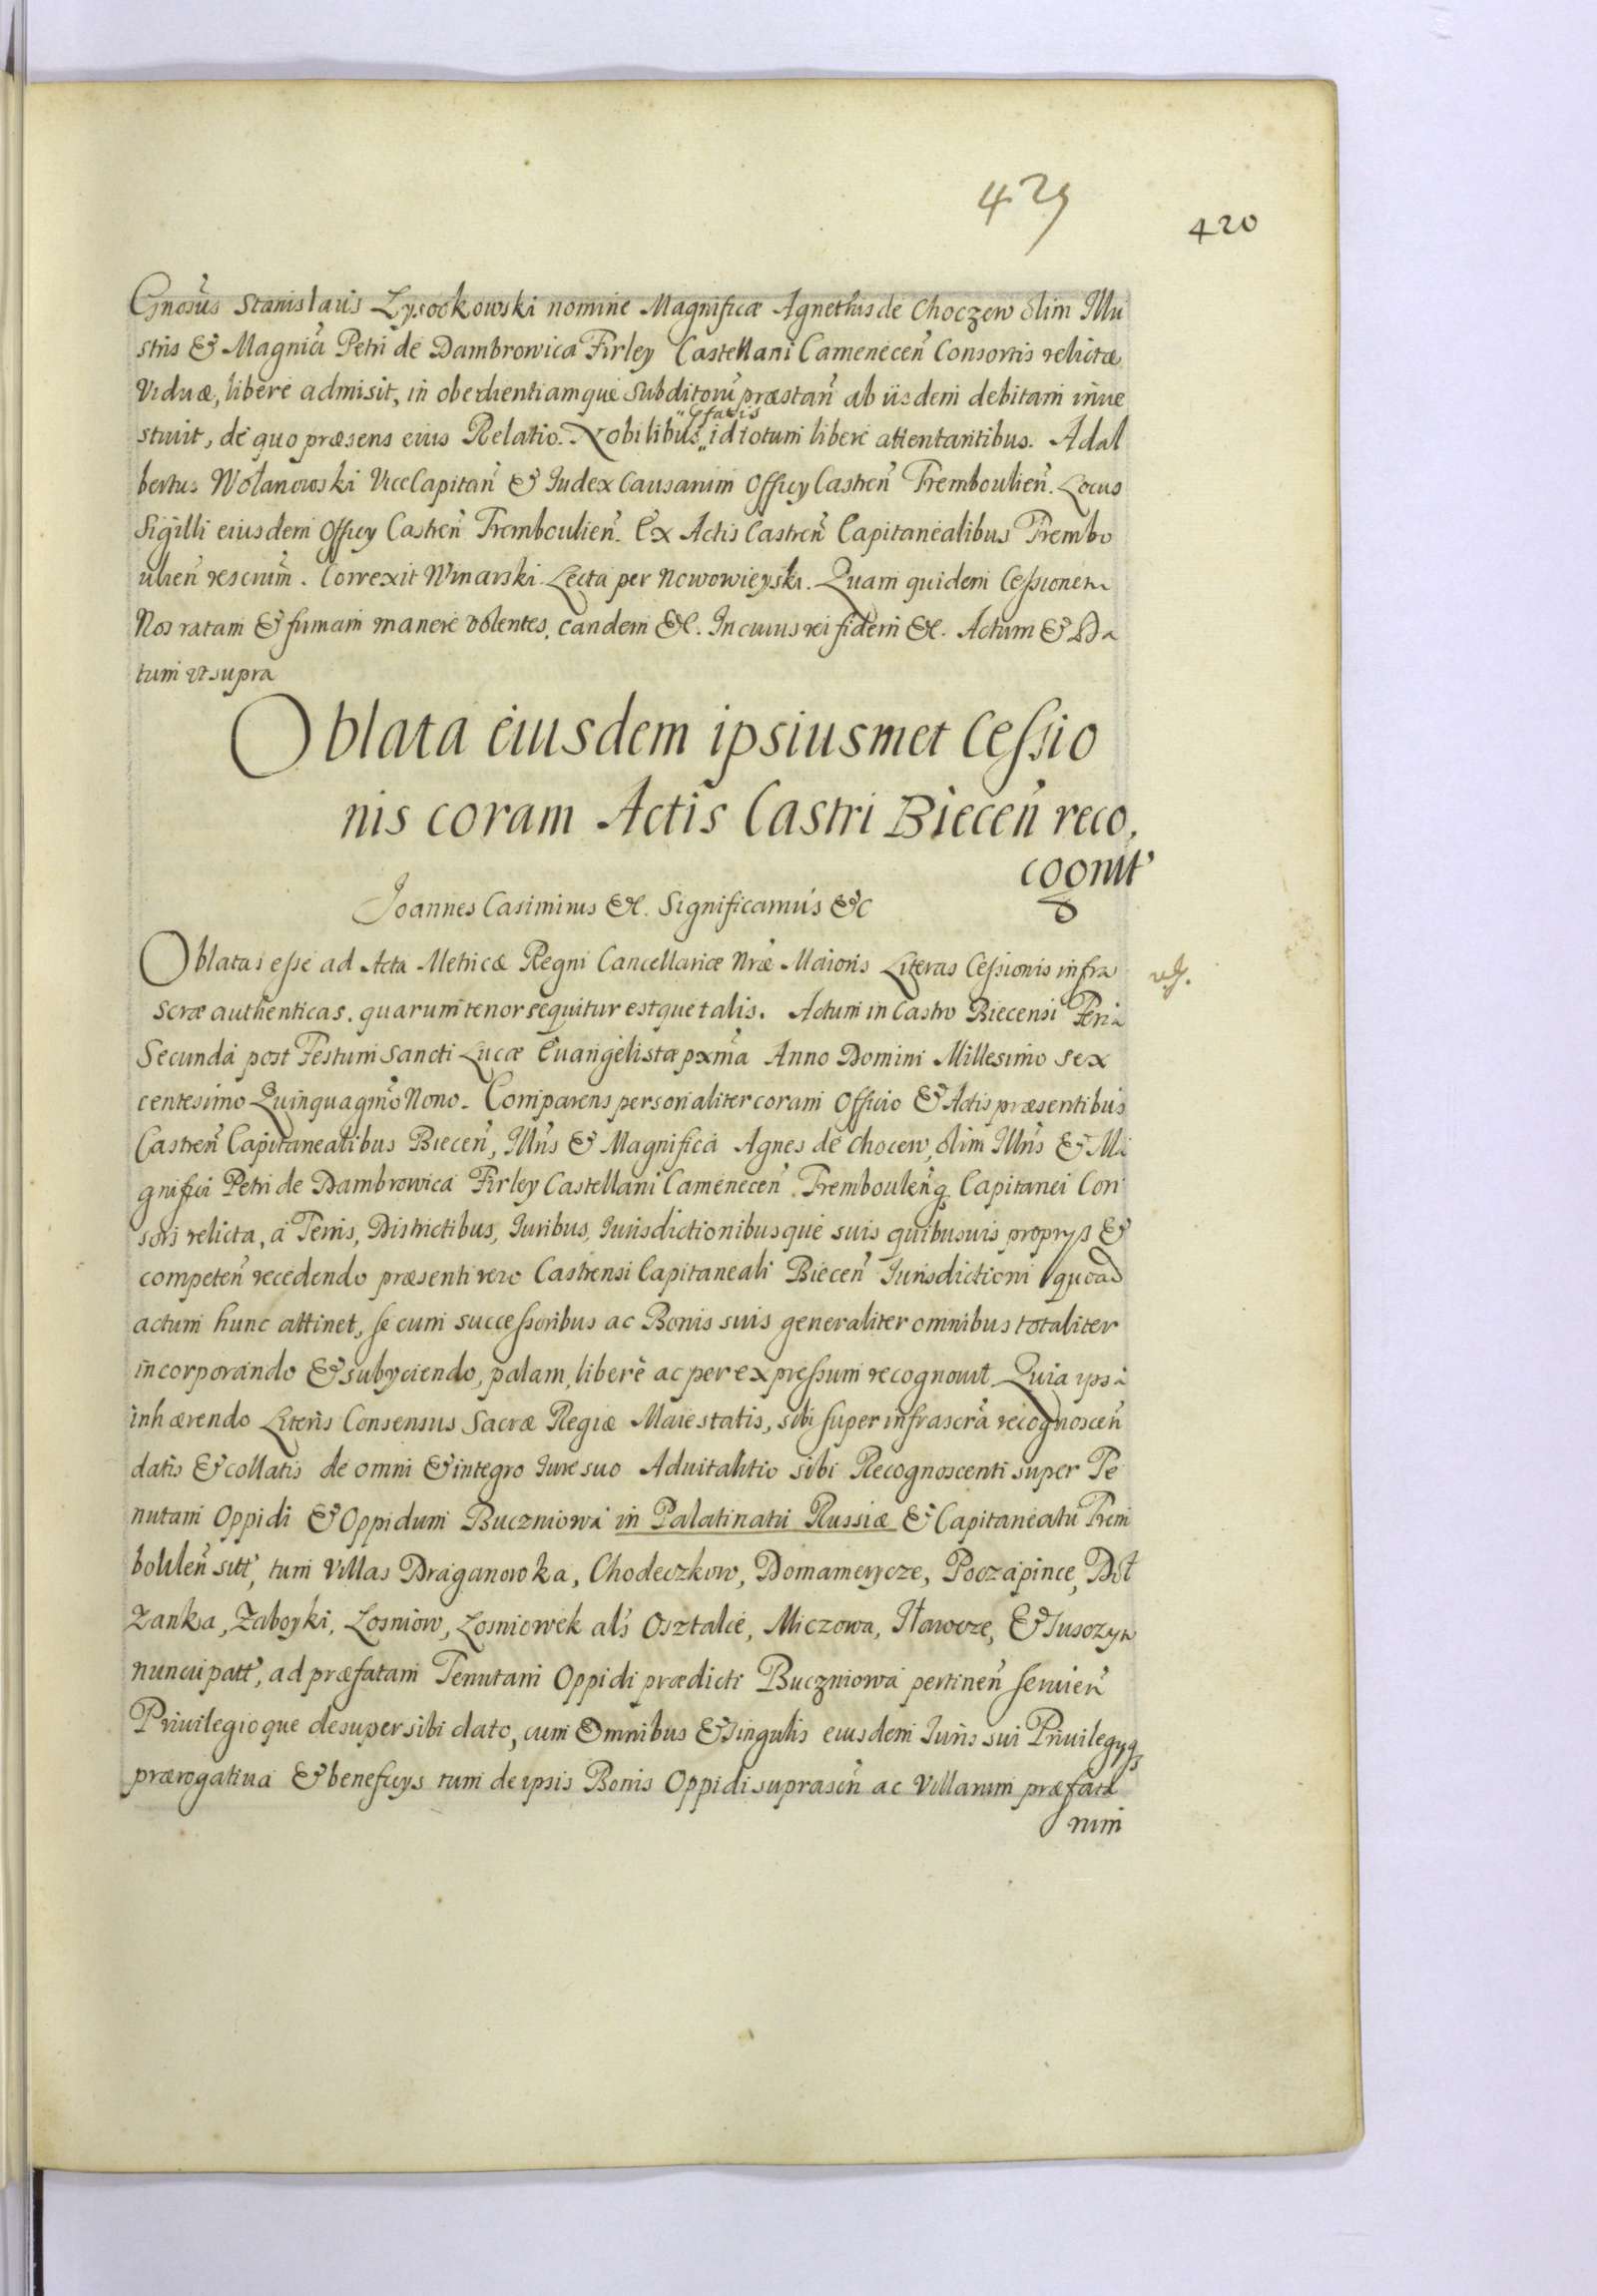 429
420
Gnosus Stanislaus Lysockowski nomine Magnificæ Agnethis de Choczew olim Illu
stris & Magnici Petri de Dambrowica Firley Castellani Camenecen̄ Consortis relictæ
Viduæ, libere admisit, in obedientiamque Subditorū præstan̄ ab iisdem debitam inue
stiuit, de quo præsens eius Relatio. Nobilibus idiotum libere attentantibus. Adal
bertus Wolanowski ViceCapitan̄ & Iudex Causarum Officy Castren̄ Tremboulien̄. Locus
Sigilli eiusdem Officy Castren̄ Tremboulien̄. Ex Actis Castren̄ Capitanealibus Trembo
ulien̄ rescrium̄. Correxit Winarski. Lecta per Nowowieyski. Quam quidem Cessionem
Nos ratam & firmam manere volentes, eandem &c. In cuius rei fidem &c. Actum & Da
tum ut supra
Oblata eiusdem ipsiusmet Cessio
nis coram Actis Castri Biecen̄ reco,
cognit
Joannes Casimirus &c. Significamus &c
Oblatas esse ad Acta Metricæ Regni Cancellariæ Nræ Maioris Literas Cessionis infra
scræ authenticas. quarum tenor sequitur estque talis. Actum in Castro Biecensi Feria
Secunda post Festum Sancti Lucæ Euangelistæ pxma Anno Domini Millesimo sex
centesimo Quinquagmo Nono. Comparens personaliter coram Officio & Actis præsentibus
Castren̄ Capitanealibus Biecen̄, Illris & Magnifica Agnes de Chocew, olim Illris & Ma
gnifici Petri de Dambrowica Firley Castellani Camenecen̄. Tremboulenq Capitanei Con
sors relicta, a Terris, Districtibus, Iuribus, Iurisdictionibusque suis quibusuis proprys &
competen̄ recedendo præsenti vero Castrensi Capitaneali Biecen̄ Iurisdictioni quoad
actum hunc attinet, se cum successoribus ac Bonis suis generaliter omnibus totaliter
incorporando & subyciendo, palam, liberè ac per expressum recognouit. Quia ipsa
inhærendo Literis Consensus Sacræ Regiæ Maiestatis, sibi super infrascra recognoscen̄
datis & collatis de omni & integro Iure suo Aduitalitio sibi Recognoscenti super Te
nutam Oppidi & Oppidum Buczniowa in Palatinatu Russiæ & Capitaneatu Trem
bolulen̄ sitt, tum Villas Draganowka, Chodeczkow, Domamerycze, Poczapince, Doł
Zanka, Zaboyki, Losniow, Losniowek als Osztalce, Miczowa, Iławcze, & Iusozyn
nuncupatt, ad præfatam Tenutam Oppidi prædicti Buczniowa pertinen̄ seruien̄
Priuilegioque desuper sibi dato, cum Omnibus & Singulis eiusdem Iuris sui Priuilegyq
prærogatiua & beneficys tum de ipsis Bonis Oppidi suprascri̅ ac Villarum præfata
rum